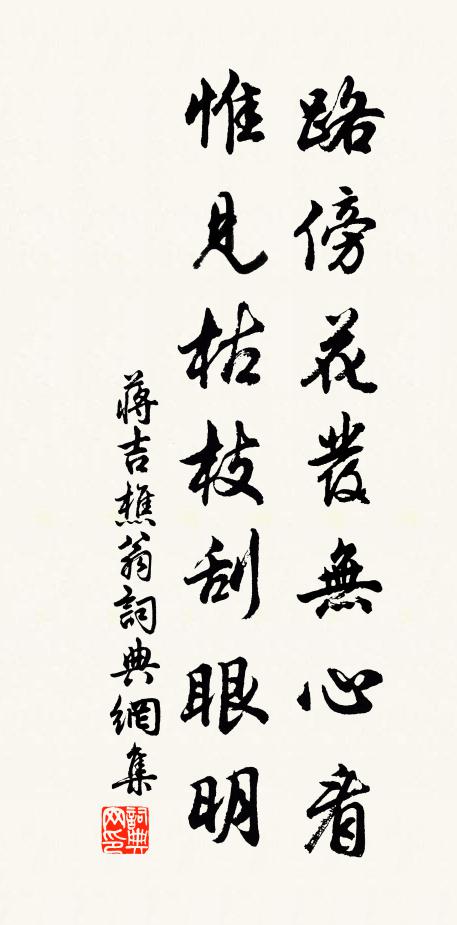 路傍花發無心看
惟見枯枝刮眼明
蔣吉樵翁詞典網集
詞典網印